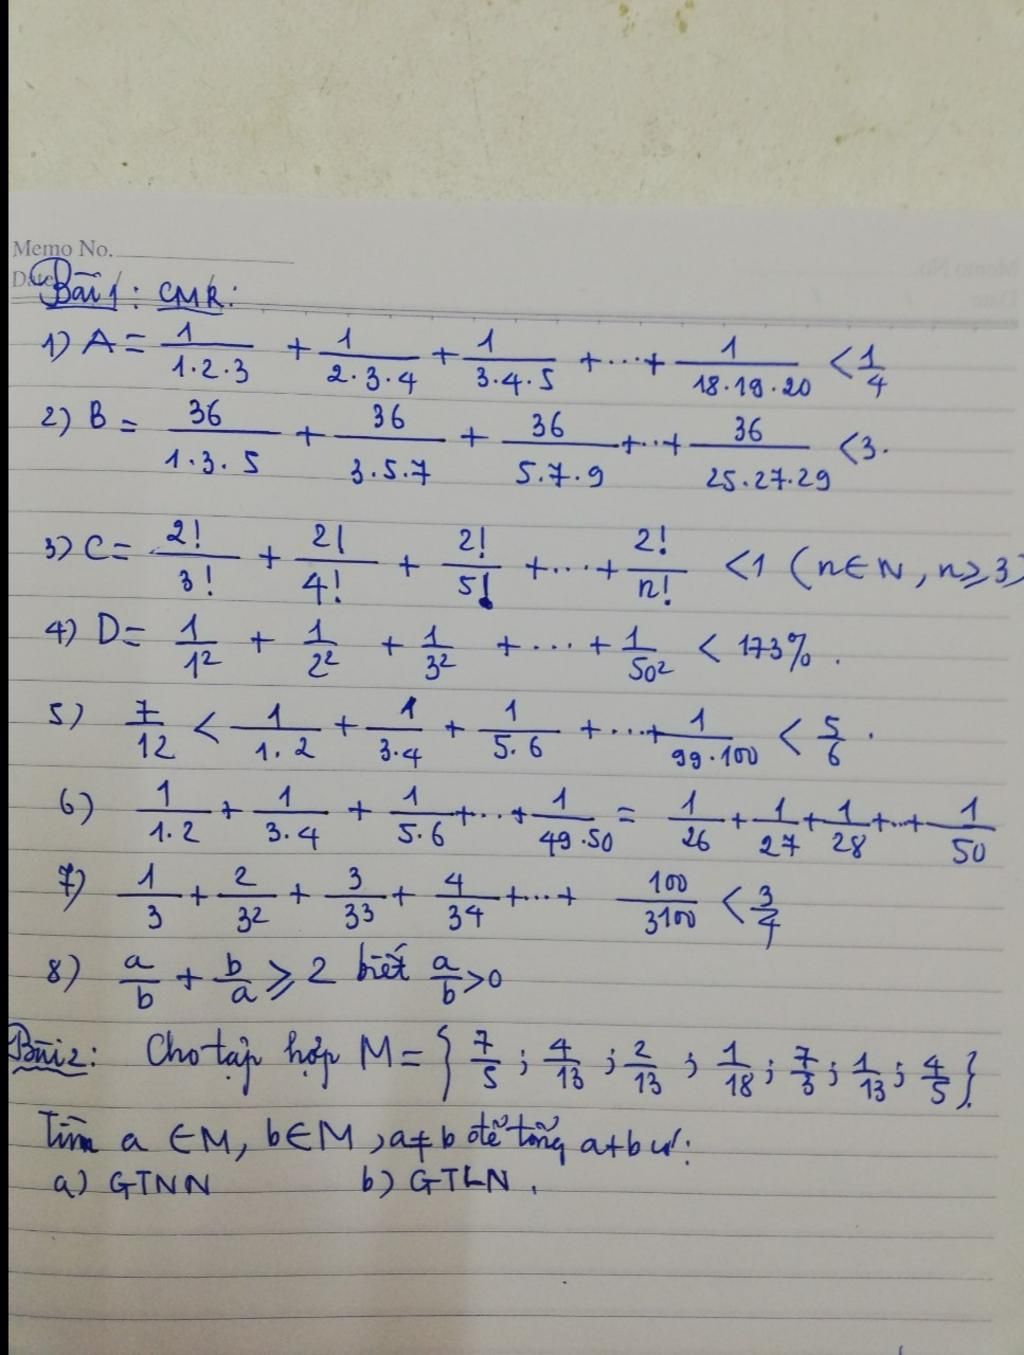 Memo No.
Date
Bài 1: CMR:
1) A = 1/(1.2.3) + 1/(2.3.4) + 1/(3.4.5) + ... + 1/(18.19.20) < 1/4
2) B = 36/(1.3.5) + 36/(3.5.7) + 36/(5.7.9) + ... + 36/(25.27.29) < 3.
3) C = 2!/3! + 2!/4! + 2!/5! + ... + 2!/n! < 1 (n∈N, n⩾3)
4) D = 1/1² + 1/2² + 1/3² + ... + 1/50² < 173%.
5) 7/12 < 1/(1.2) + 1/(3.4) + 1/(5.6) + ... + 1/(99.100) < 5/6.
6) 1/(1.2) + 1/(3.4) + 1/(5.6) + ... + 1/(49.50) = 1/26 + 1/27 + 1/28 + ... + 1/50
7) 1/3 + 2/3² + 3/3³ + 4/3⁴ + ... + 100/3¹⁰⁰ < 3/4
8) a/b + b/a ⩾ 2 biết a/b > 0
Bài 2: Cho tập hợp M = {7/5; 4/13; 2/13; 1/18; 7/3; 1/13; 4/5}.
Tìm a ∈ M, b ∈ M, a ≠ b để tổng a+b :
a) GTNN b) GTLN.